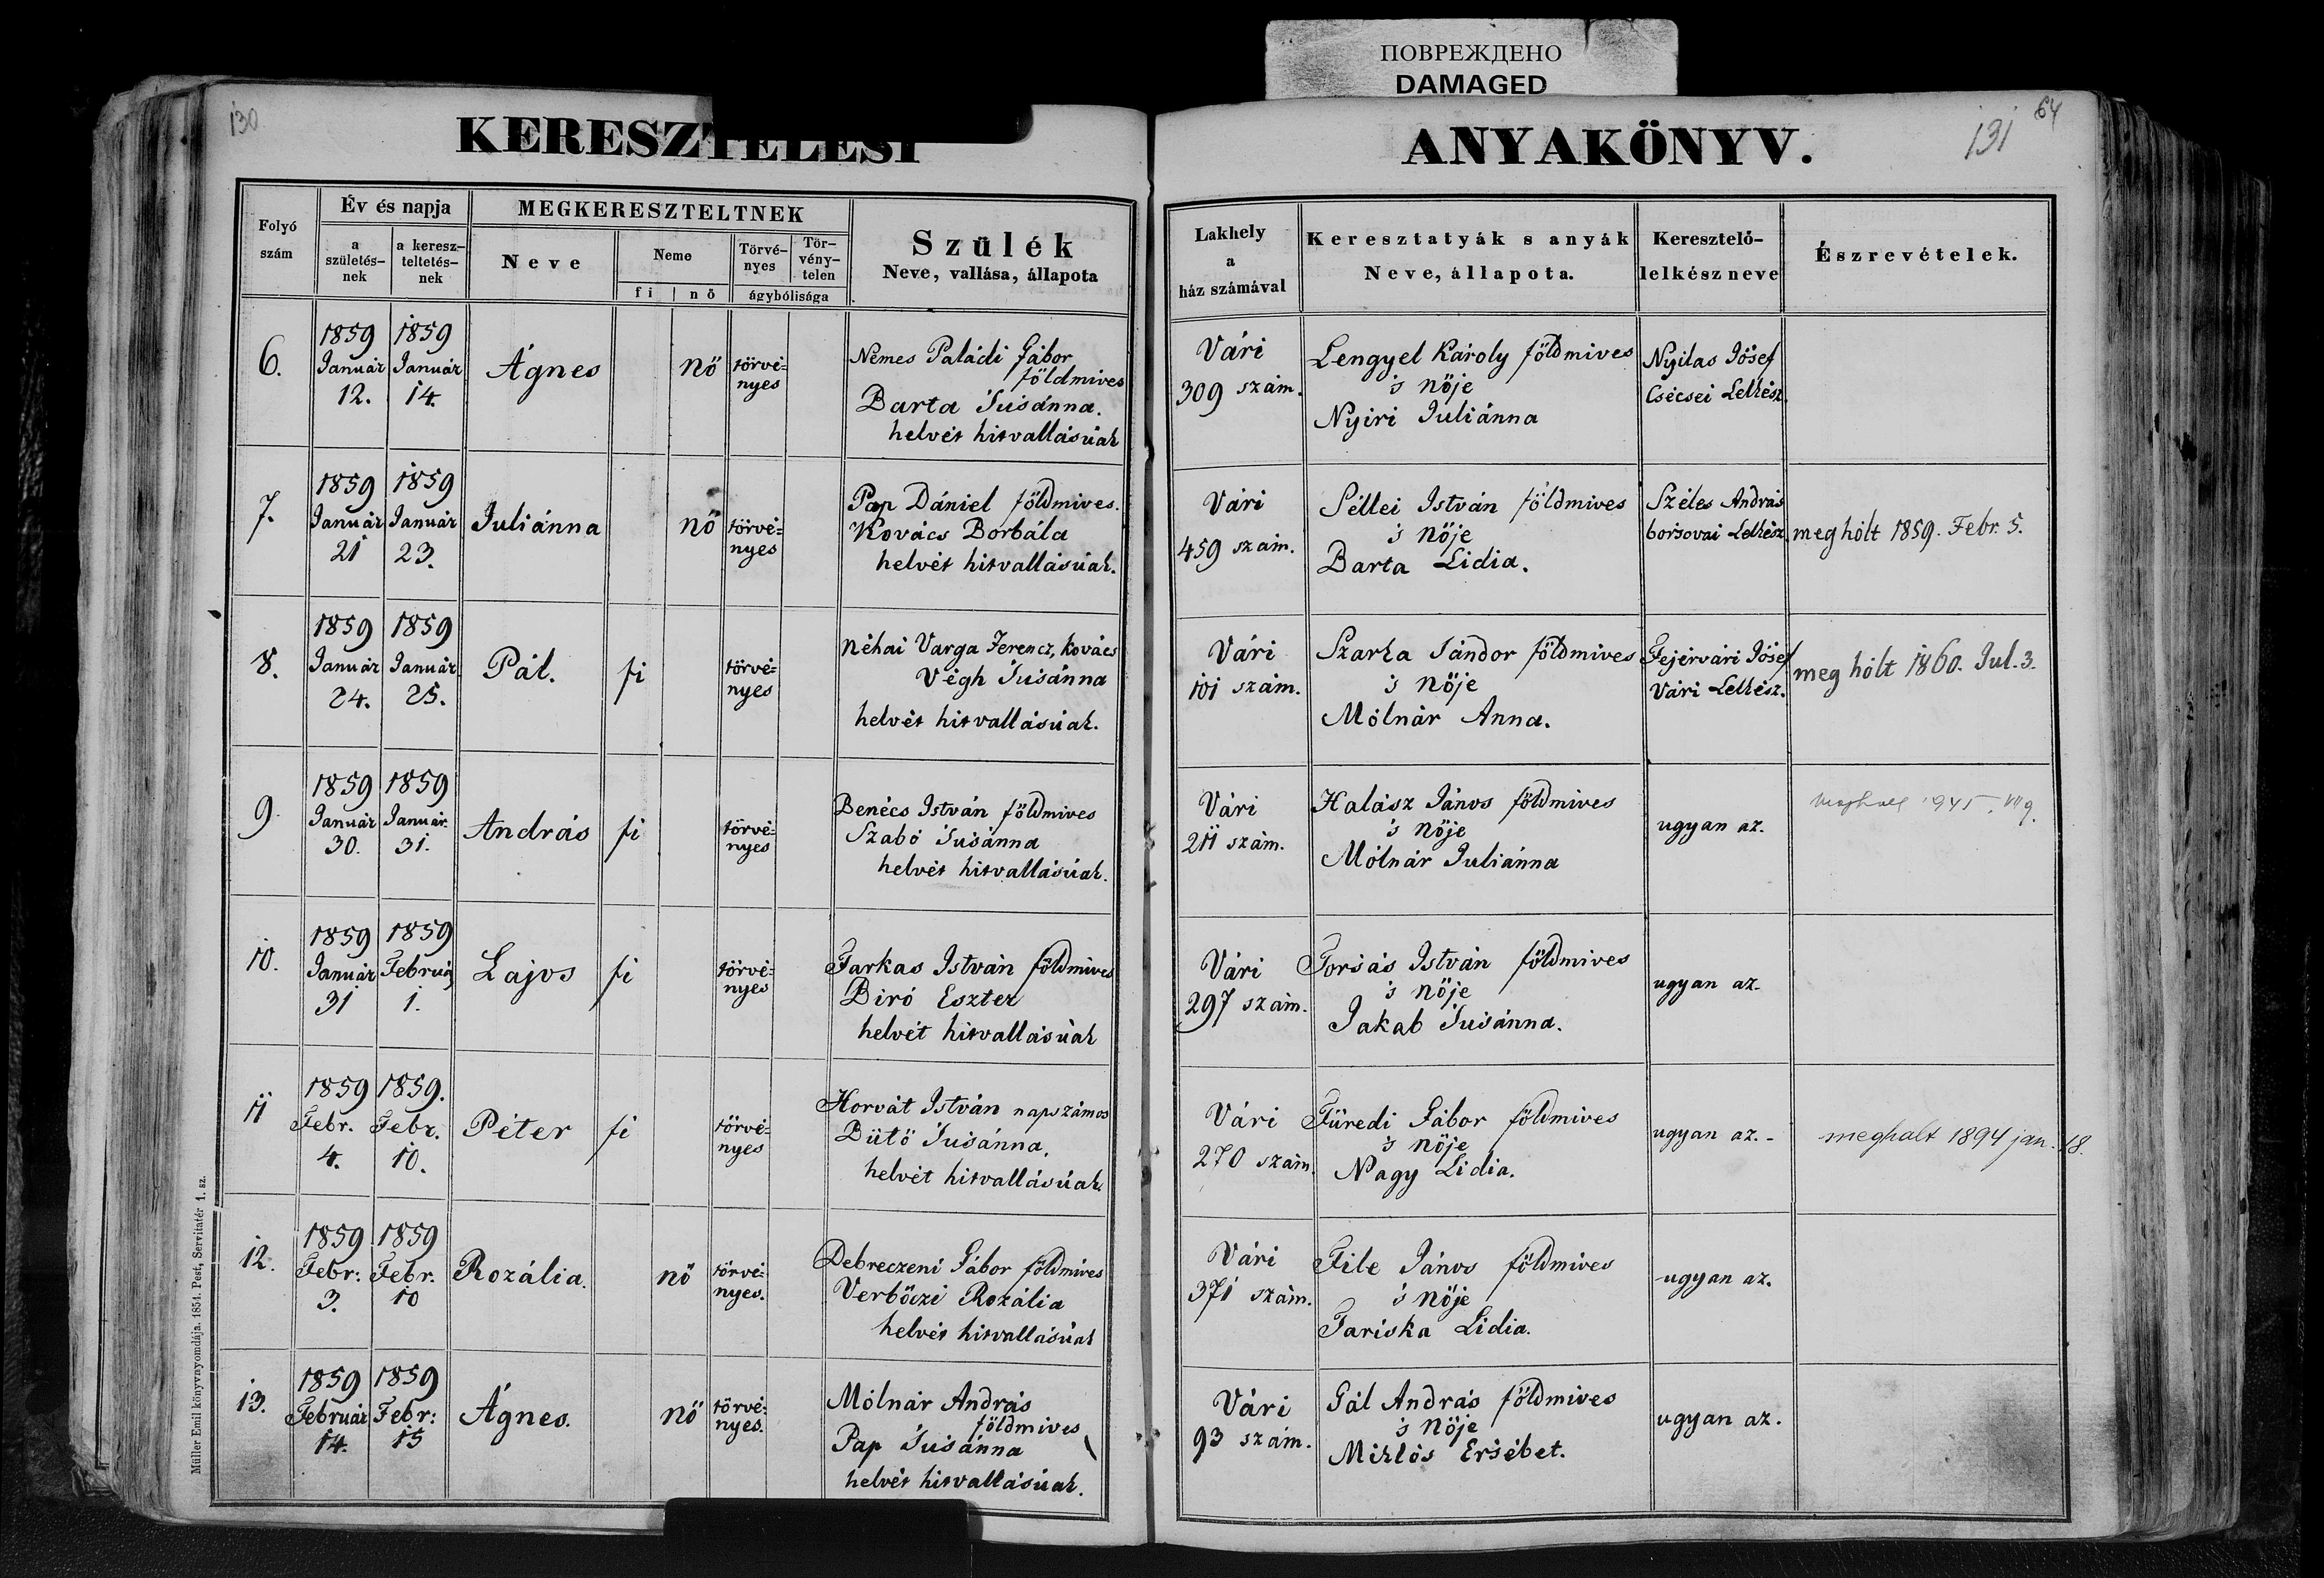 ПОВРЕЖДЕНО
DAMAGED
130
KERESZTELÉSI
ANYAKÖNYV.
131
64
Folyó szám
Év és napja
a születés-nek
a keresz-teltetés-nek
MEGKERESZTELTNEK
Neve
Neme
fi | nő
Törvé-nyes
Tör-vény-telen
ágybólisága
Szülék
Neve, vallása, állapota
Lakhely
a
ház számával
Keresztatyák s anyák
Neve, állapota.
Keresztelő-
lelkész neve
Észrevételek.
6.
1859 Január 12.
1859 Január 14.
Ágnes
nö
törvé=
nyes
Nemes Paládi Gábor
földmives
Barta Susánna.
helvét hitvallásúak
Vári
309 szám.
Lengyel Károly földmives
's nöje
Nyiri Juliánna
Nyilas Jósef
Csécsei Lelkész.
7.
1859 Január 21
1859 Január 23.
Juliánna
nö
törvé=
nyes
Pap Dániel földmives.
Kovács Borbála
helvét hitvallásúak.
Vári
459 szám.
Séllei István földmives
's nöje
Barta Lidia.
Széles András
borsovai Lelkész.
meg hólt 1859. Febr. 5.
8.
1859 Január 24.
1859 Január 25.
Pál.
fi
törvé=
nyes
néhai Varga Ferencz, kovács
Végh Susánna
helvét hitvallásúak.
Vári
101 szám.
Szarka Sándor földmives
's nöje
Mólnár Anna.
Fejérvári Jósef
Vári Lelkész.
meg hólt 1860. Jul. 3.
9.
1859 Január 30.
1859 Január 31.
András
fi
törvé=
nyes
Benécs István földmives
Szabó Susánna
helvét hitvallásúak.
Vári
211 szám.
Halász János földmives
's nöje
Mólnár Juliánna
ugyan az.
10.
1859 Január 31
1859 Február 1.
Lajos
fi
törvé=
nyes
Farkas István földmives
Biró Eszter
helvét hitvallásúak
Vári
297 szám.
Forsás István földmives
's nöje
Jakab Susánna.
ugyan az.
11
1859 Febr. 4.
1859. Febr. 10.
Péter
fi
törvé=
nyes
Horvát István napszámos
Bütö Susánna.
helvét hitvallásúak.
Vári
270 szám.
Füredi Gábor földmives
's nöje
Nagy Lidia.
ugyan az. -
meghalt 1894 jan. 18.
12.
1859 Febr: 3.
1859 Febr. 10
Rozália.
nö
törvé=
nyes.
Debreczeni Gábor földmives
Verböczi Rozália
helvét hitvallásúak
Vári
371 szám.
File János földmives
's nöje
Fariska Lidia.
ugyan az.
13.
1859 Február 14.
1859 Febr: 15
Ágnes.
nö
törvé=
nyes.
Mólnár András
földmives
Pap Susánna
helvét hitvallásúak.
Vári
93 szám.
Gál András földmives
's nöje
Miklós Ersébet.
ugyan az.
Müller Emil könyvnyomdája. 1854. Pest, Servitatér 1. sz.